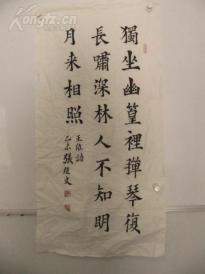 獨坐幽篁裡撣琴復
長嘯深林人不知明
月来相照
王维詩
乙未張俊文